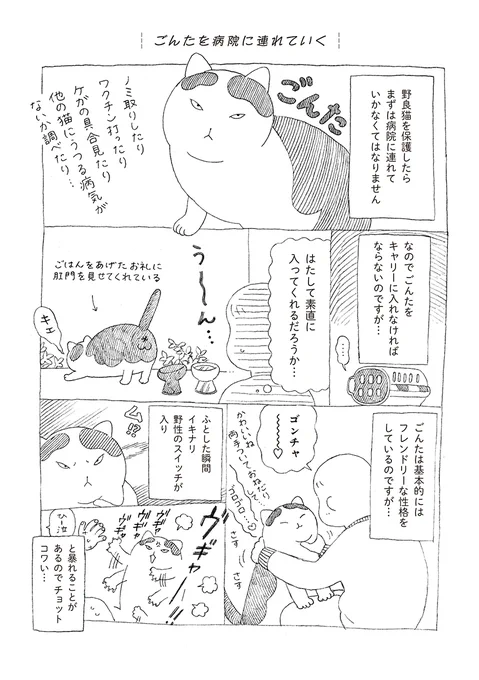 ごんたを病院に連れていく
野良猫を保護したら
まずは病院に連れて
いかなくてはなりません
ごんた
ノミ取りしたり
ワクチン打ったり
ケガの具合見たり
他の猫にうつる病気が
ないか調べたり…
なので ごんたを
キャリーに入れなければ
ならないのですが…
(…)
はたして素直に
入ってくれるだろうか…
う～～ん…
ごはんをあげた お礼に
肛門を見せてくれている
キエ
ごんたは基本的には
フレンドリーな性格を
しているのですが…
ゴンチャ
〜〜〜♡
かわいいね
両手ついて、おねだり
して
ゴロゴロ…♡
さす
さす
ふとした瞬間
イキナリ
野性のスイッチが
入り
ム!?
ヴギャー!!
ヴギャ
ヴギャ
ヴギャ
ひー泣
と暴れることが
あるので チョット
コワい…